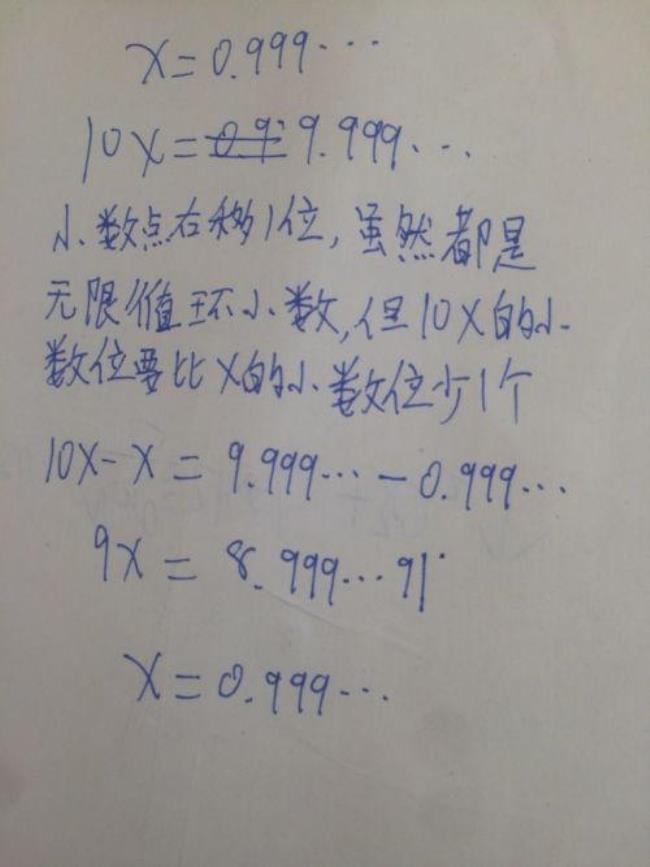 x=0.999···
10x=0.9 9.999...
小数点右移1位,虽然都是
无限循环小数,但10x的小
数位要比x的小数位少1个
10x-x=9.999···-0.999···
9x=8.999···91
x=0.999···